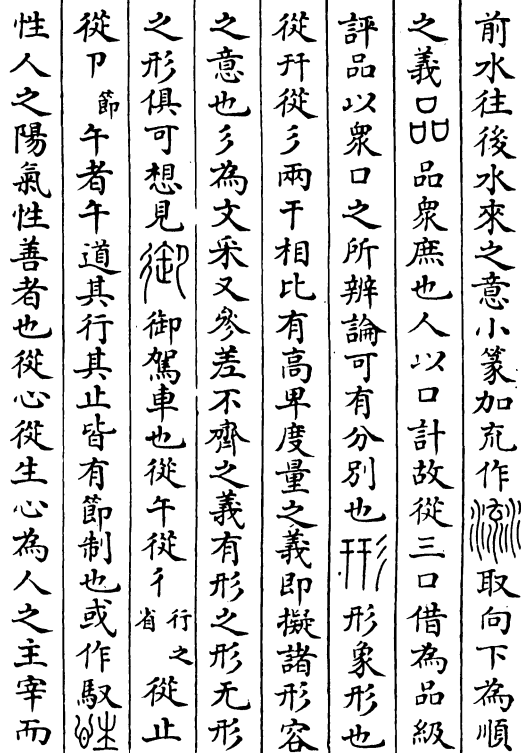 前水往後水來之意小篆加㐬作取向下為順
之義品衆庶也人以口計故從三口借為品級
評品以衆口之所辨論可有分別也形象形也
從幵從彡兩干相比有高卑度量之義即擬諸形容
之意也彡為文采又參差不齊之義有形之形无形
之形俱可想見御駕車也從午從彳行之省從止
從卩節午者午道其行其止皆有節制也或作馭
性人之陽氣性善者也從心從生心為人之主宰而